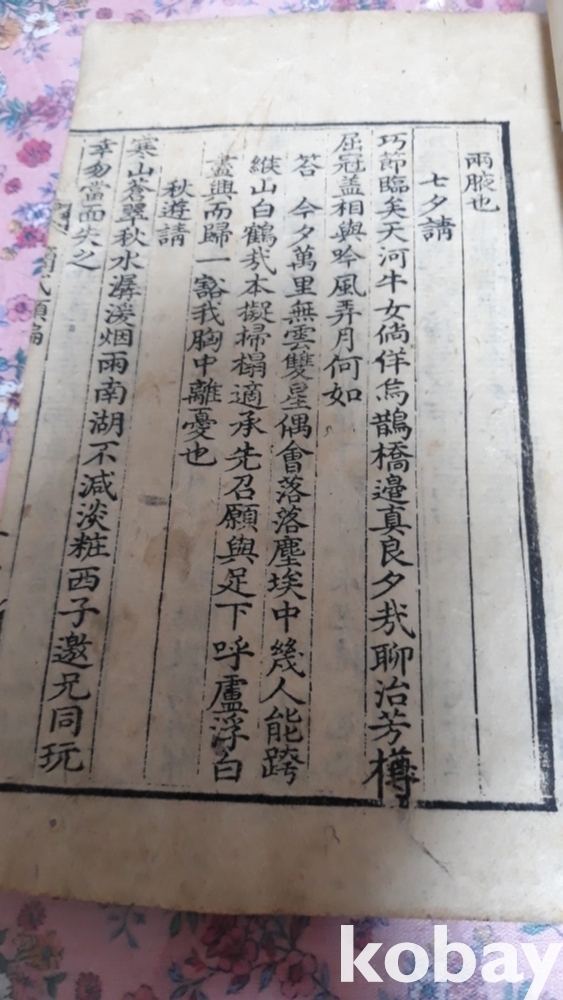 兩腋也
七夕請
巧節臨矣天河牛女倘佯烏鵲橋邉真良夕㢤聊治芳樽
屈冠盖相與吟風弄月何如
答 今夕萬里無雲雙星偶會落落塵埃中幾人能跨
緱山白鶴㢤本擬掃榻適承先召願與足下呼盧浮白
盡興而歸一豁我胸中離憂也
秋遊請
寒山蒼翠秋水潺湲烟雨南湖不減淡粧西子邀兄同玩
幸勿當面失之
kobay